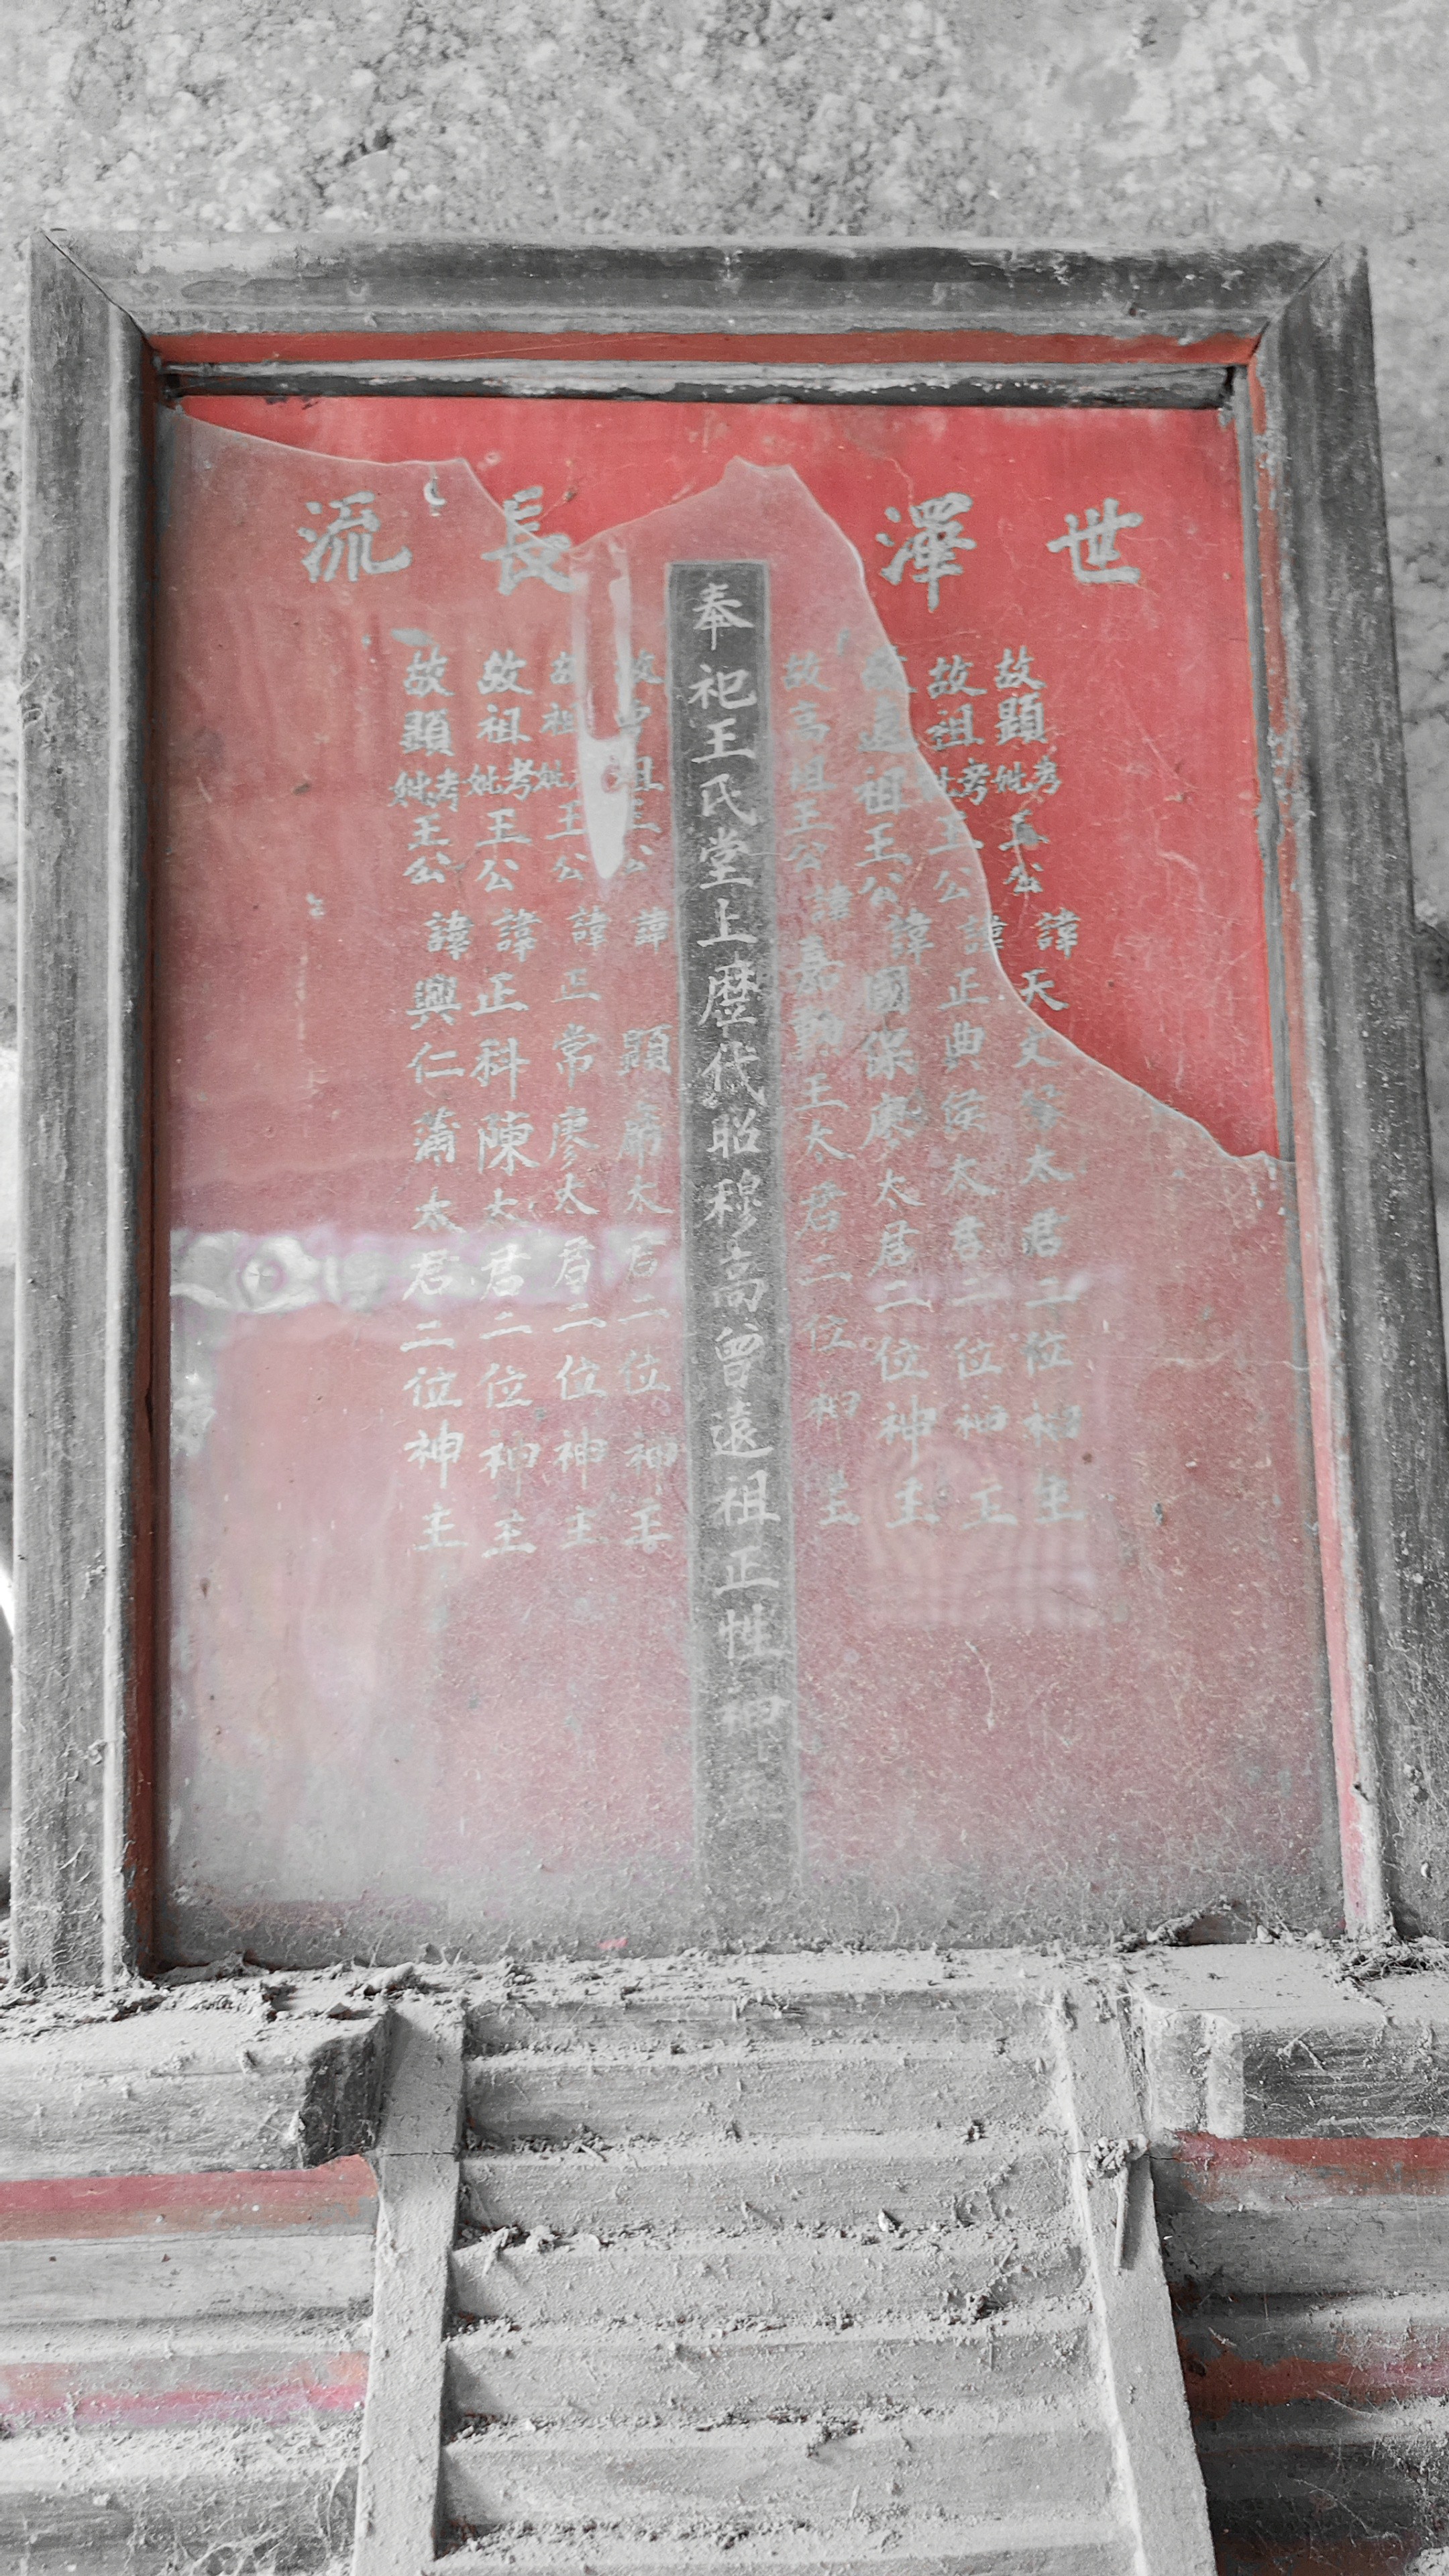 世澤長流
故顯考妣王公諱天文 太君二位神主
故祖考妣王公諱正典 太君二位神主
故遠祖王公諱國保廖太君二位神主
故高祖王公諱嘉 王太君二位神主
奉祀王氏堂上歷代昭穆高曾遠祖正性神
故 祖王公諱顯 太君二位神主
故祖妣王公諱正常廖太君二位神主
故祖考妣王公諱正科陳太君二位神主
故顯考妣王公諱興仁蕭太君二位神主